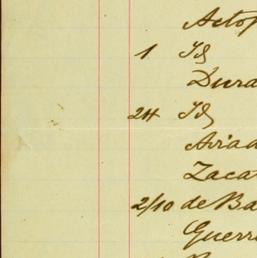 Actop
1 Id
Dura
24 Id
Aviad
Zacat
2/10 de Ba
Guerr